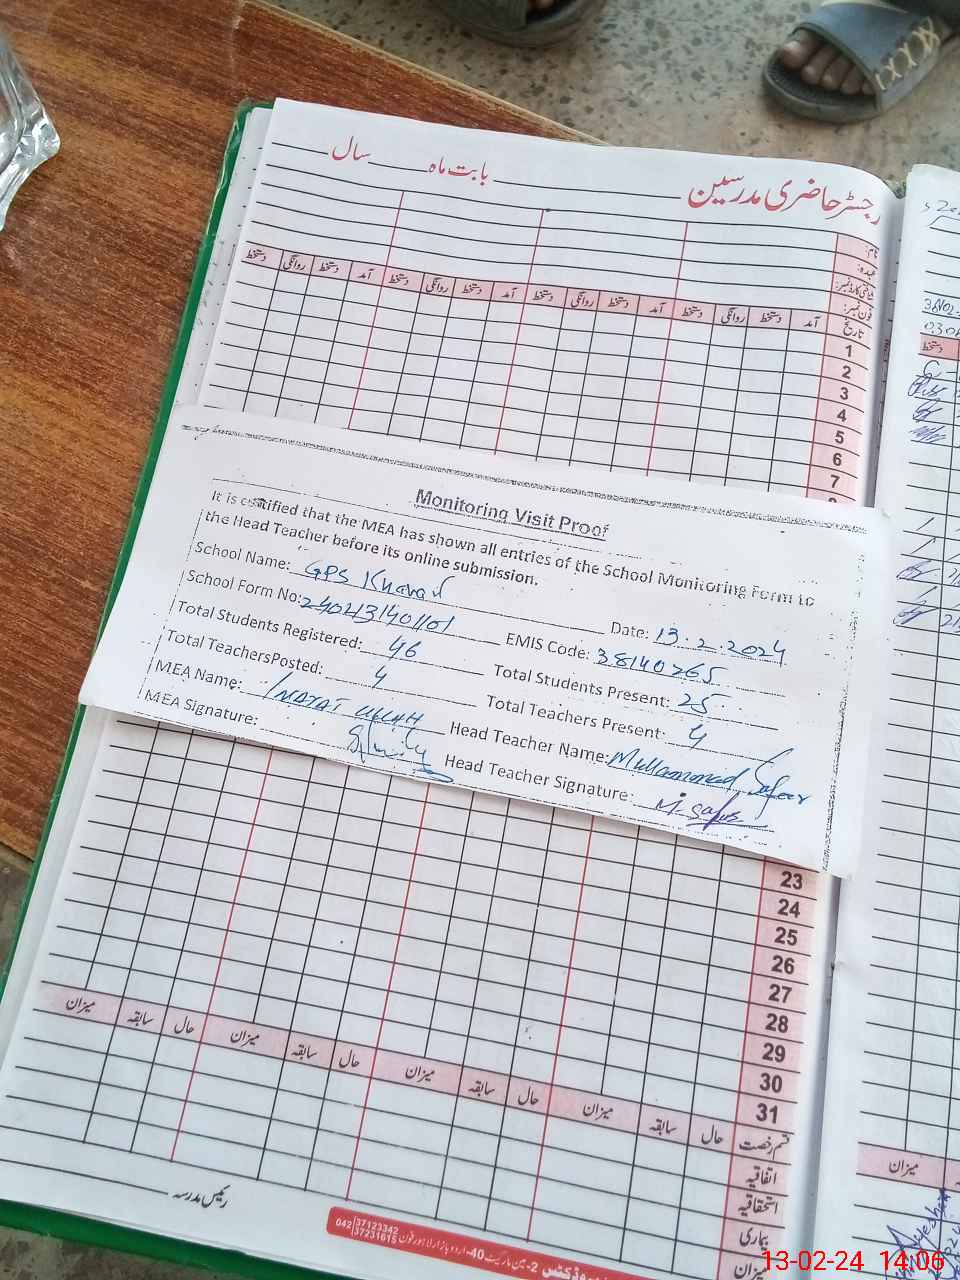 رجسٹر حاضری مدرسین ــــــ بابت ماہ ــــــ سال ــــــ
نام:
عہدہ:
شناختی کارڈ نمبر:
فون نمبر:
تاریخ آمد دستخط روانگی دستخط آمد دستخط روانگی دستخط آمد دستخط روانگی دستخط آمد دستخط روانگی دستخط
1
2
3
4
5
6
7
Monitoring Visit Proof
It is certified that the MEA has shown all entries of the School Monitoring Form to
the Head Teacher before its online submission.
School Name: GPS Date: 13.2.2024
School Form No: 2402131401101 EMIS Code: 38140265
Total Students Registered: 46 Total Students Present: 25
Total TeachersPosted: 4 Total Teachers Present: 4
MEA Name: INAYAT ULLAH Head Teacher Name: Muhammad Safeer
MEA Signature: Head Teacher Signature: M. Safeer
23
24
25
26
27
28
29
30
31
قسم رخصت حال سابقہ میزان حال سابقہ میزان حال سابقہ میزان حال سابقہ میزان
اتفاقیہ
استحقاقیہ
بیماری
میزان
رئیس مدرسہ
2-مین مارکیٹ 40-اردو بازار لاہور فون 042 37123342
37231615
دستخط
میزان
13-02-24 14:06